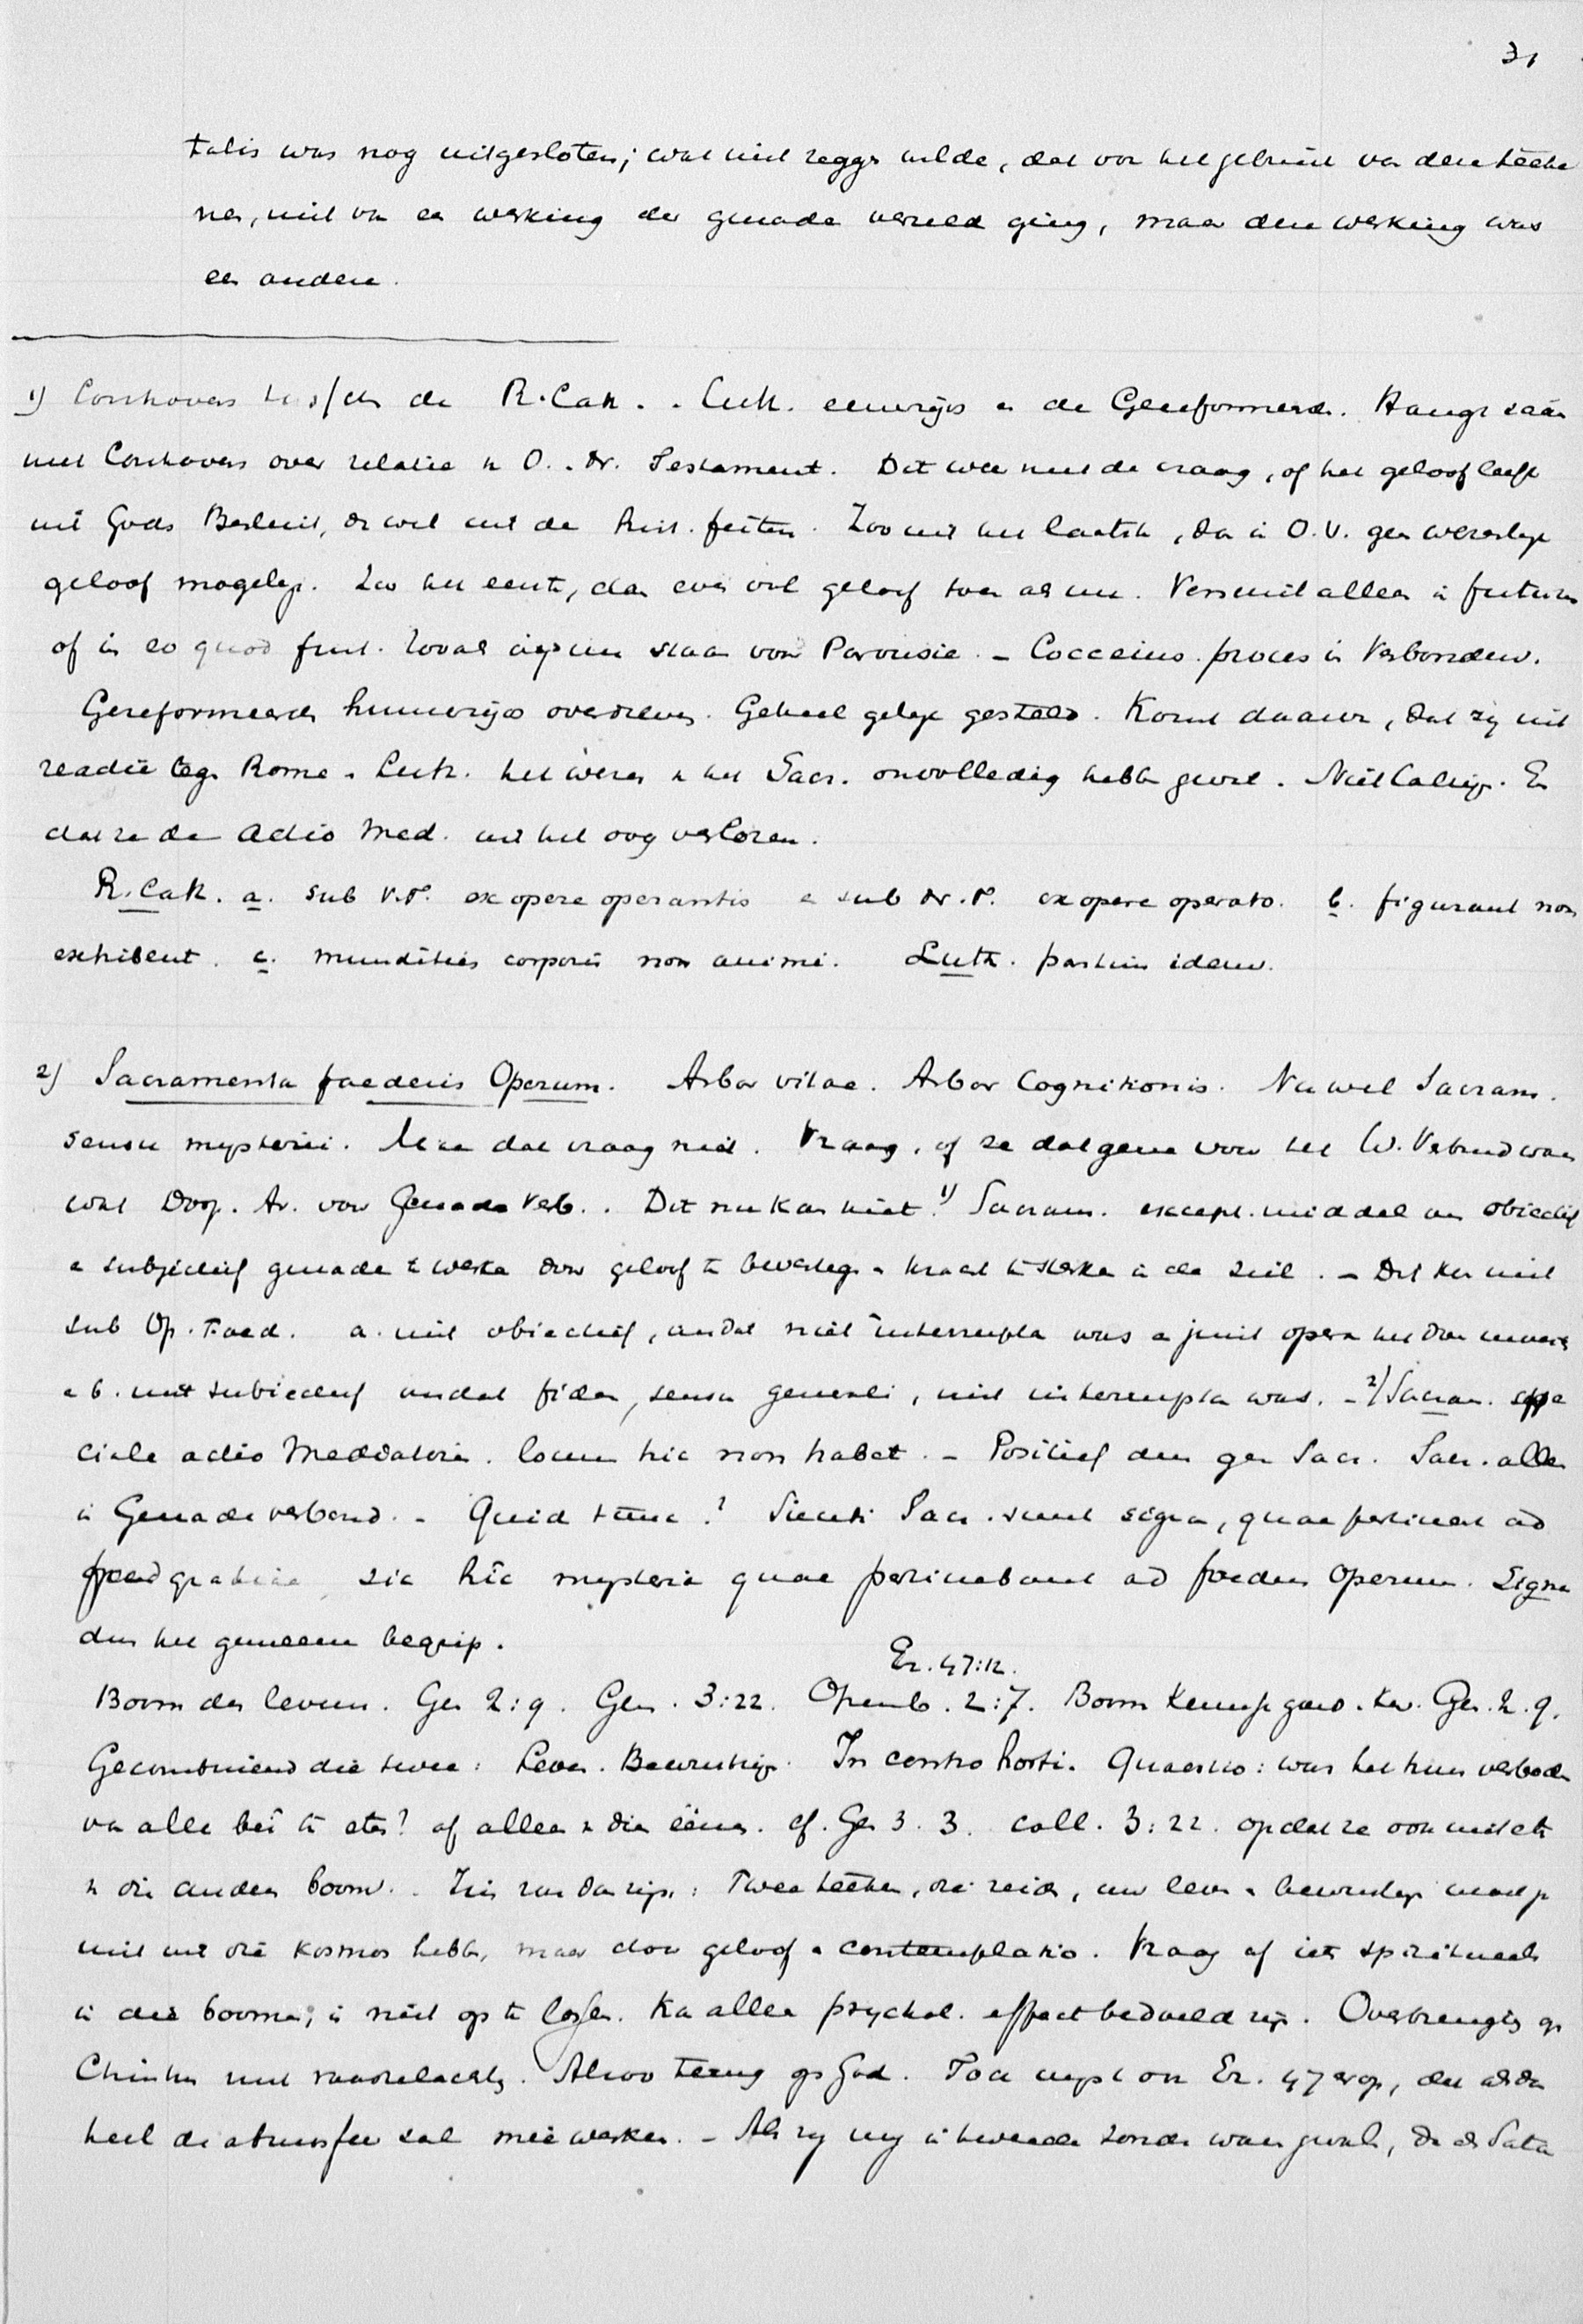 31
talis was nog uitgesloten; wat niet zegge wilde, dat van het gebruik van deze teeke
nen, niet van een werking der genade verzeld ging, maar deze werking was
een andere.
1) Controvers tusschen de R. Cath. . Luth. eenerzijds en de Gereformeerden. Hangt saam
met Controvers over relatie v. O. . N. Testament. Dit weer met de vraag, of het geloof leeft
uit Gods Besluit, dan wel uit de hist. feiten. Zoo uit het laatste, dan in O.V. geen wezenlijk
geloof mogelijk. Zoo het eerste, dan even veel geloof toen als nu. Verschil alleen in futurum
of in eo quod fuit. Zooals wij nu staan voor Parousie. – Coccejus. proces in Verbonden.
Gereformeerden hunnerzijds overdreven. Geheel gelijk gesteld. Komt daarvan, dat zij uit
reactie tegen Rome . Luth. het wezen v. het Sacr. onvolledig hebben gevoeld. Niet Calvijn. En
dat ze de actio Med. uit het oog verloren.
R. Cath. a. sub V.T. ex opere operantis e sub N.T. ex opere operato. b. figurant non
exhibent. c. mundities corporis non animi. Luth. partim idem.
2) Sacramenta foederis Operum. Arbor vitae. Arbor Cognitionis. Nu wel Sacram.
sensu mysterii. Maar dat vraag niet. Vraag, of ze datgene voor het W. Verbond waren
wat Doop. Av. voor Genade Verb. . Dit nu kan niet. 1) Sacram. except. middel om objectief
e subjectief genade te werken door geloof te bevestigen . kracht te sterken in de ziel. – Dit kon niet
sub Op. Foed. a. niet objectief, omdat niet interrupta was e juist opera het doen moest
e b. niet subjectief omdat fides, sensu generali, niet interrupta was. – 2) Sacram. spe
ciale actio Mediatoris. locum hic non habet. – Positief dus geen Sacr. Sacr. alleen
in Genadeverbond. – Quid tunc? Sicuti Sacr. sunt signa, quae pertinent ad
foed gratiae sic hic mysteria quae pertinebant ad foedus Operum. Signa
dus het gemeene begrip.
Ez. 47:12.
Boom des levens. Gen 2:9. Gen. 3:22. Openb. 2:7. Boom Kennisse goed . kw. Gen. 2. 9.
Gecombineerd die twee: Leven. Bewustzijn. In centro horti. Quaestio: was het hun verboden
van alle bei te eten? of alleen v die ééne. cf. Gen 3. 3. coll. 3:22. opdat ze ook niet ete
v die anderen boom. . Zin zou dan zijn: Twee teeken, die zeiden, uw leven . bewustzijn moet ge
niet uit die kosmos hebben, maar door geloof . contemplatio. Vraag of iets spiritueels
in die boomen, is niet op te lossen. Kan alleen psychol. effect bedoeld zijn. Overbrenging op
Christus met raadselachtig. Alzoo terug op God. Toch wijst ons Ez. 47 erop, dat alsdan
heel de atmosfeer zal meêwerken. – Als zij nog in tweede zonde waren gevallen, dan de Satan